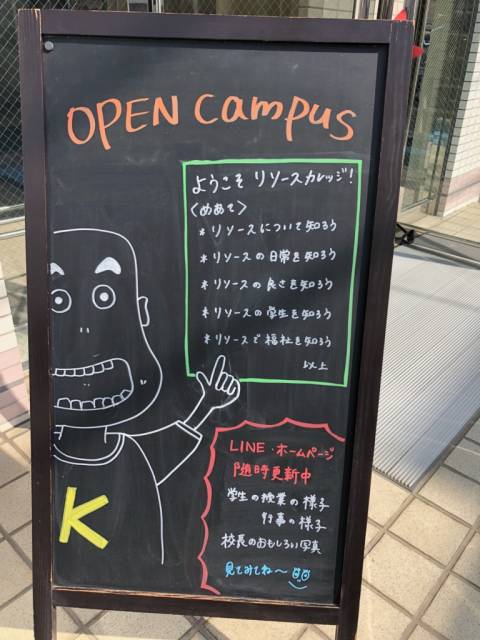 OPEN Campus
ようこそ リソースカレッジ!
〈めあて〉
*リソースについて知ろう
*リソースの日常を知ろう
*リソースの良さを知ろう
*リソースの学生を知ろう
*リソースで福祉を知ろう
以上
LINE・ホームページ
随時更新中
学生の授業の様子
行事の様子
校長のおもしろい写真
見てみてね〜
K